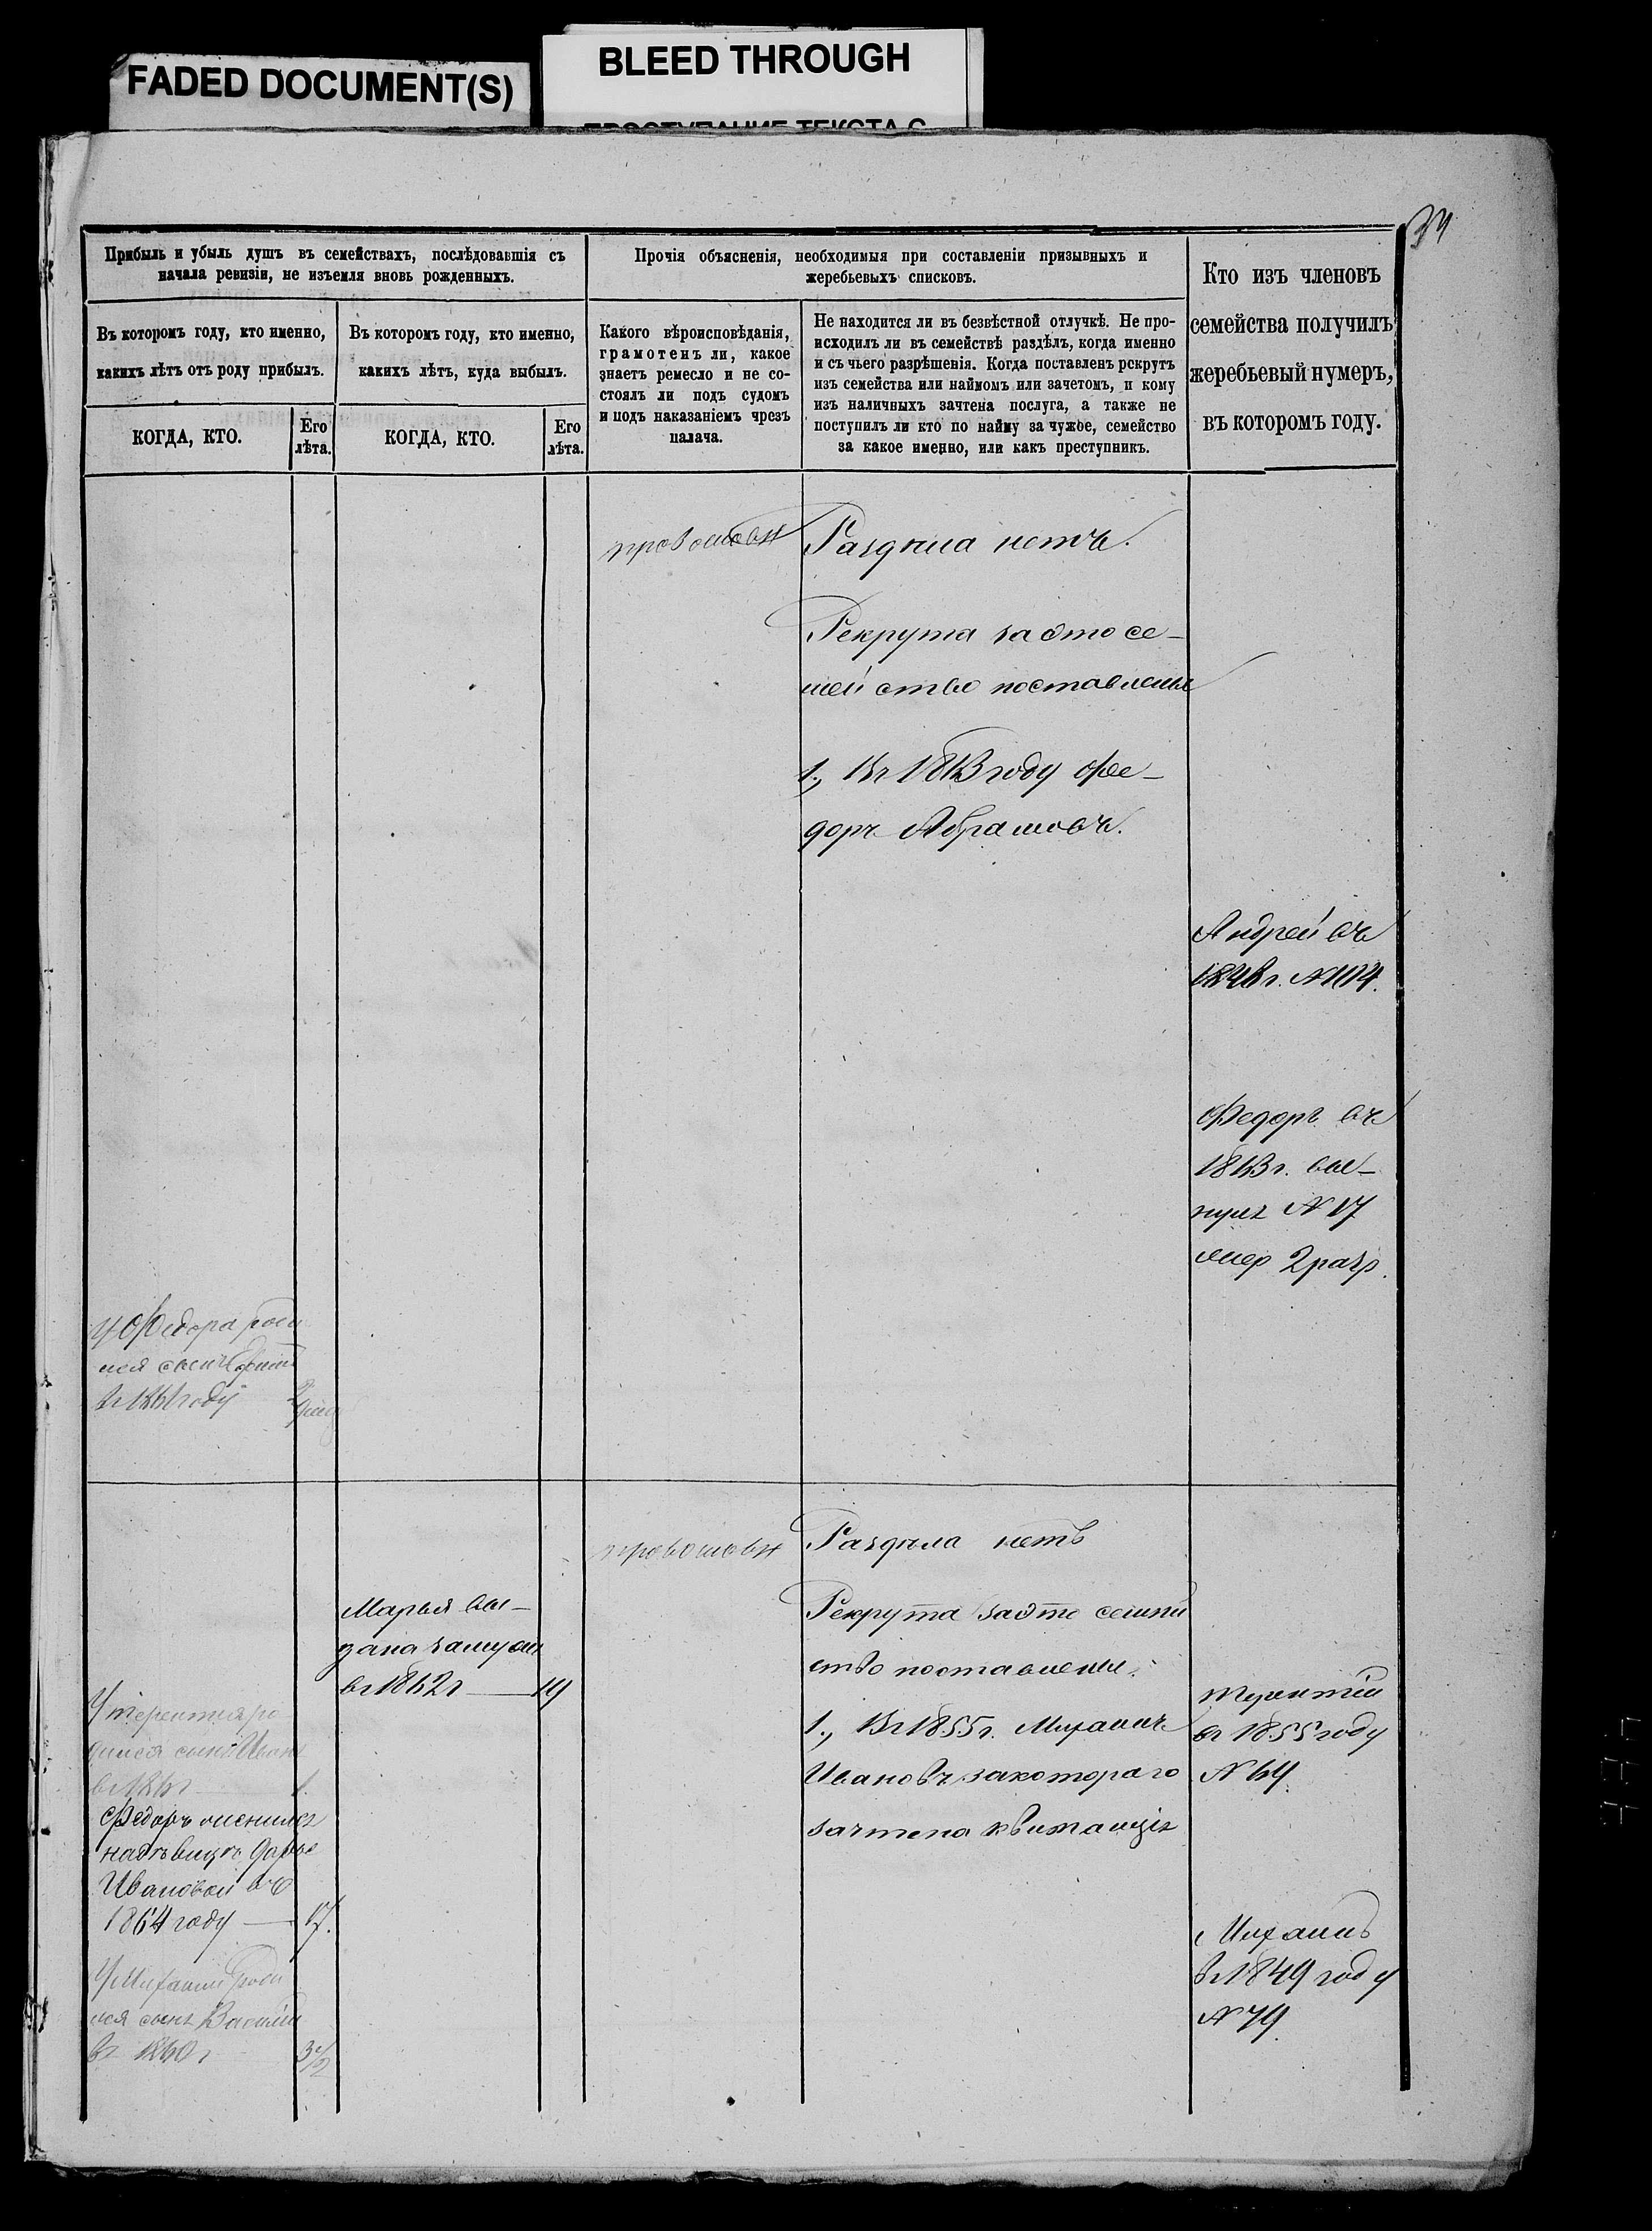 FADED DOCUMENT(S)
BLEED THROUGH
ПРОСТУПАНИЕ ТЕКСТА С
34
Прибыль и убыль душъ въ семействахъ, послѣдовавшія съ
начала ревизіи, не изъемля вновь рожденныхъ.
Въ которомъ году, кто именно,
какихъ лѣтъ отъ роду прибылъ.
КОГДА, КТО.
Его
лѣта.
Въ которомъ году, кто именно,
какихъ лѣтъ, куда выбылъ.
КОГДА, КТО.
Его
лѣта.
Прочія объясненія, необходимыя при составленіи призывныхъ и
жеребьевыхъ списковъ.
Какого вѣроисповѣданія,
грамотенъ ли, какое
знаетъ ремесло и не со-
стоялъ ли подъ судомъ
и подъ наказаніемъ чрезъ
палача.
Не находится ли въ безвѣстной отлучкѣ. Не про-
исходилъ ли въ семействѣ раздѣлъ, когда именно
и съ чьего разрѣшенія. Когда поставленъ рекрутъ
изъ семейства или наймомъ или зачетомъ, и кому
изъ наличныхъ зачтена послуга, а также не
поступилъ ли кто по найму за чужое, семейство
за какое именно, или какъ преступникъ.
Кто изъ членовъ
семейства получилъ
жеребьевый нумеръ,
въ которомъ году.
Раздѣла нетъ.
Рекрута за это се-
мейство поставлены
1., Въ году Фе-
доръ Абрамовъ.
Андрей въ
Федоръ въ
вы-
нулъ № 17
2 разр.
у Федора роди
лся сынъ
въ году
Раздѣла нетъ
Рекрута за это семей
ство поставлены.
1., Въ 1855 г. Михаилъ
Ивановъ за котораго
зачтена квитанція
Марья вы-
дана замужъ
въ 1862 г 19
У Терентия ро
дился сынъ Иванъ
Федоръ женился
на девице Дарье
Ивановой въ
1864 году 17.
У Михаила роди
лся сынъ Василий
въ 1860 г 3 1/2
Терентий
въ 1855 году
№ 64
Михаилъ
въ 1849 году
№ 79.